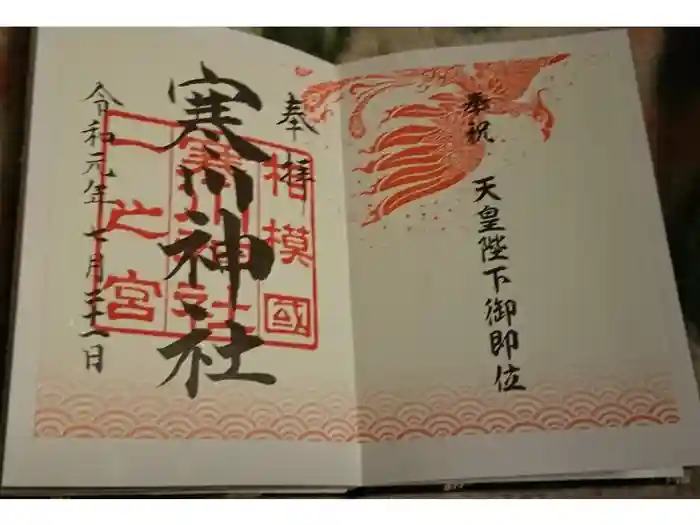 奉祝
天皇陛下御即位
奉拝
寒川神社
相模國
寒川神社
一之宮
令和元年七月三十一日